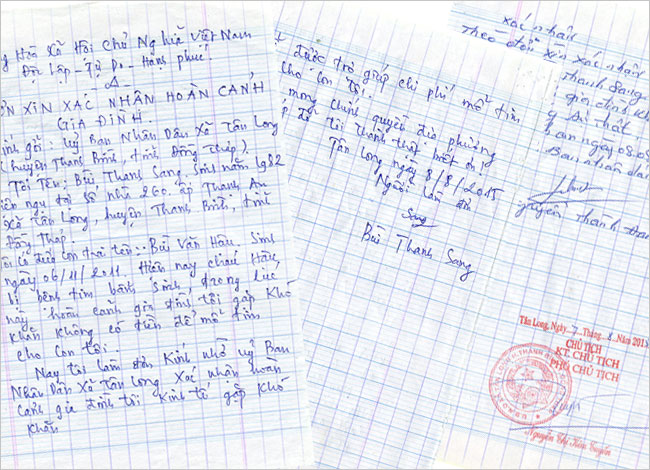 Hòa Xã Hội Chủ Nghĩa Việt Nam
Độc Lập - Tự Do - Hạnh phúc!
ĐƠN XIN XÁC NHẬN HOÀN CẢNH
GIA ĐÌNH.
gởi: Uỷ Ban Nhân Dân Xã Tân Long
(huyện Thanh Bình, tỉnh Đồng Tháp)
Tôi Tên: Bùi Thanh Sang, sinh năm 1982
ngụ tại số nhà 260. ấp Thanh An
xã Tân Long, huyện Thanh Bình, tỉnh
Đồng Tháp.
có đứa con trai tên: Bùi Văn Hậu. Sinh
ngày 06/11/2011. Hiện nay cháu Hậu
bị bệnh tim bẩm sinh, trong lúc
này hoàn cảnh gia đình tôi gặp khó
khăn không có tiền để mổ tim
cho con tôi.
Nay tôi làm đơn kính nhờ uỷ Ban
Nhân Dân xã Tân Long xác nhận hoàn
cảnh gia đình tôi kinh tế gặp khó
khăn
được trợ giúp chi phí mổ tim
cho con tôi.
mong chính quyền địa phương
tôi thành thật biết ơn!
Tân Long ngày 8/8/2015
Người làm đơn
Sang
Bùi Thanh Sang
xác nhận
Theo đơn xin xác nhận
thanh Sang
gia đình kh
sự thật
ban ngày 08.0
Ban nhân dân
nguyễn thành
Tân Long, Ngày 7 Tháng 8 Năm 201
CHỦ TỊCH
KT. CHỦ TỊCH
PHÓ CHỦ TỊCH
Nguyễn Thị Kim Tuyến